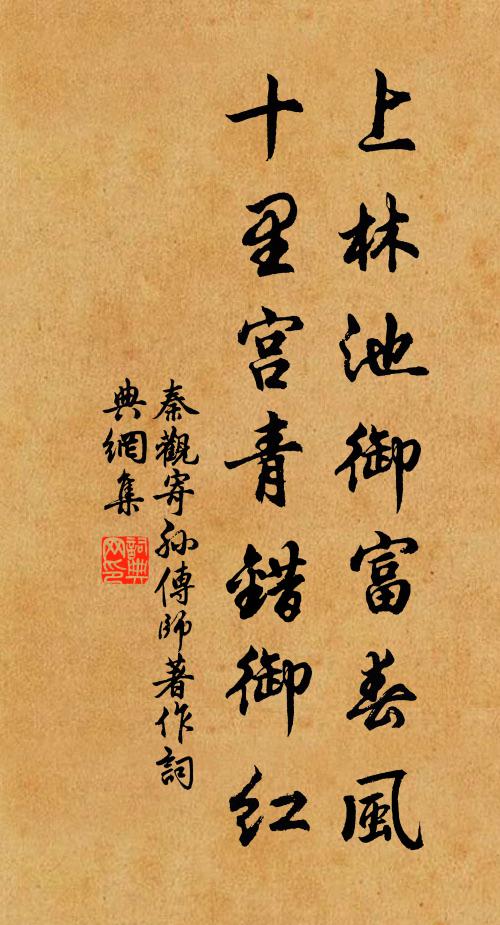 上林池御富春風
十里宫青錯御红
秦觀寄孙傳師著作詞
典網集
詞典網印